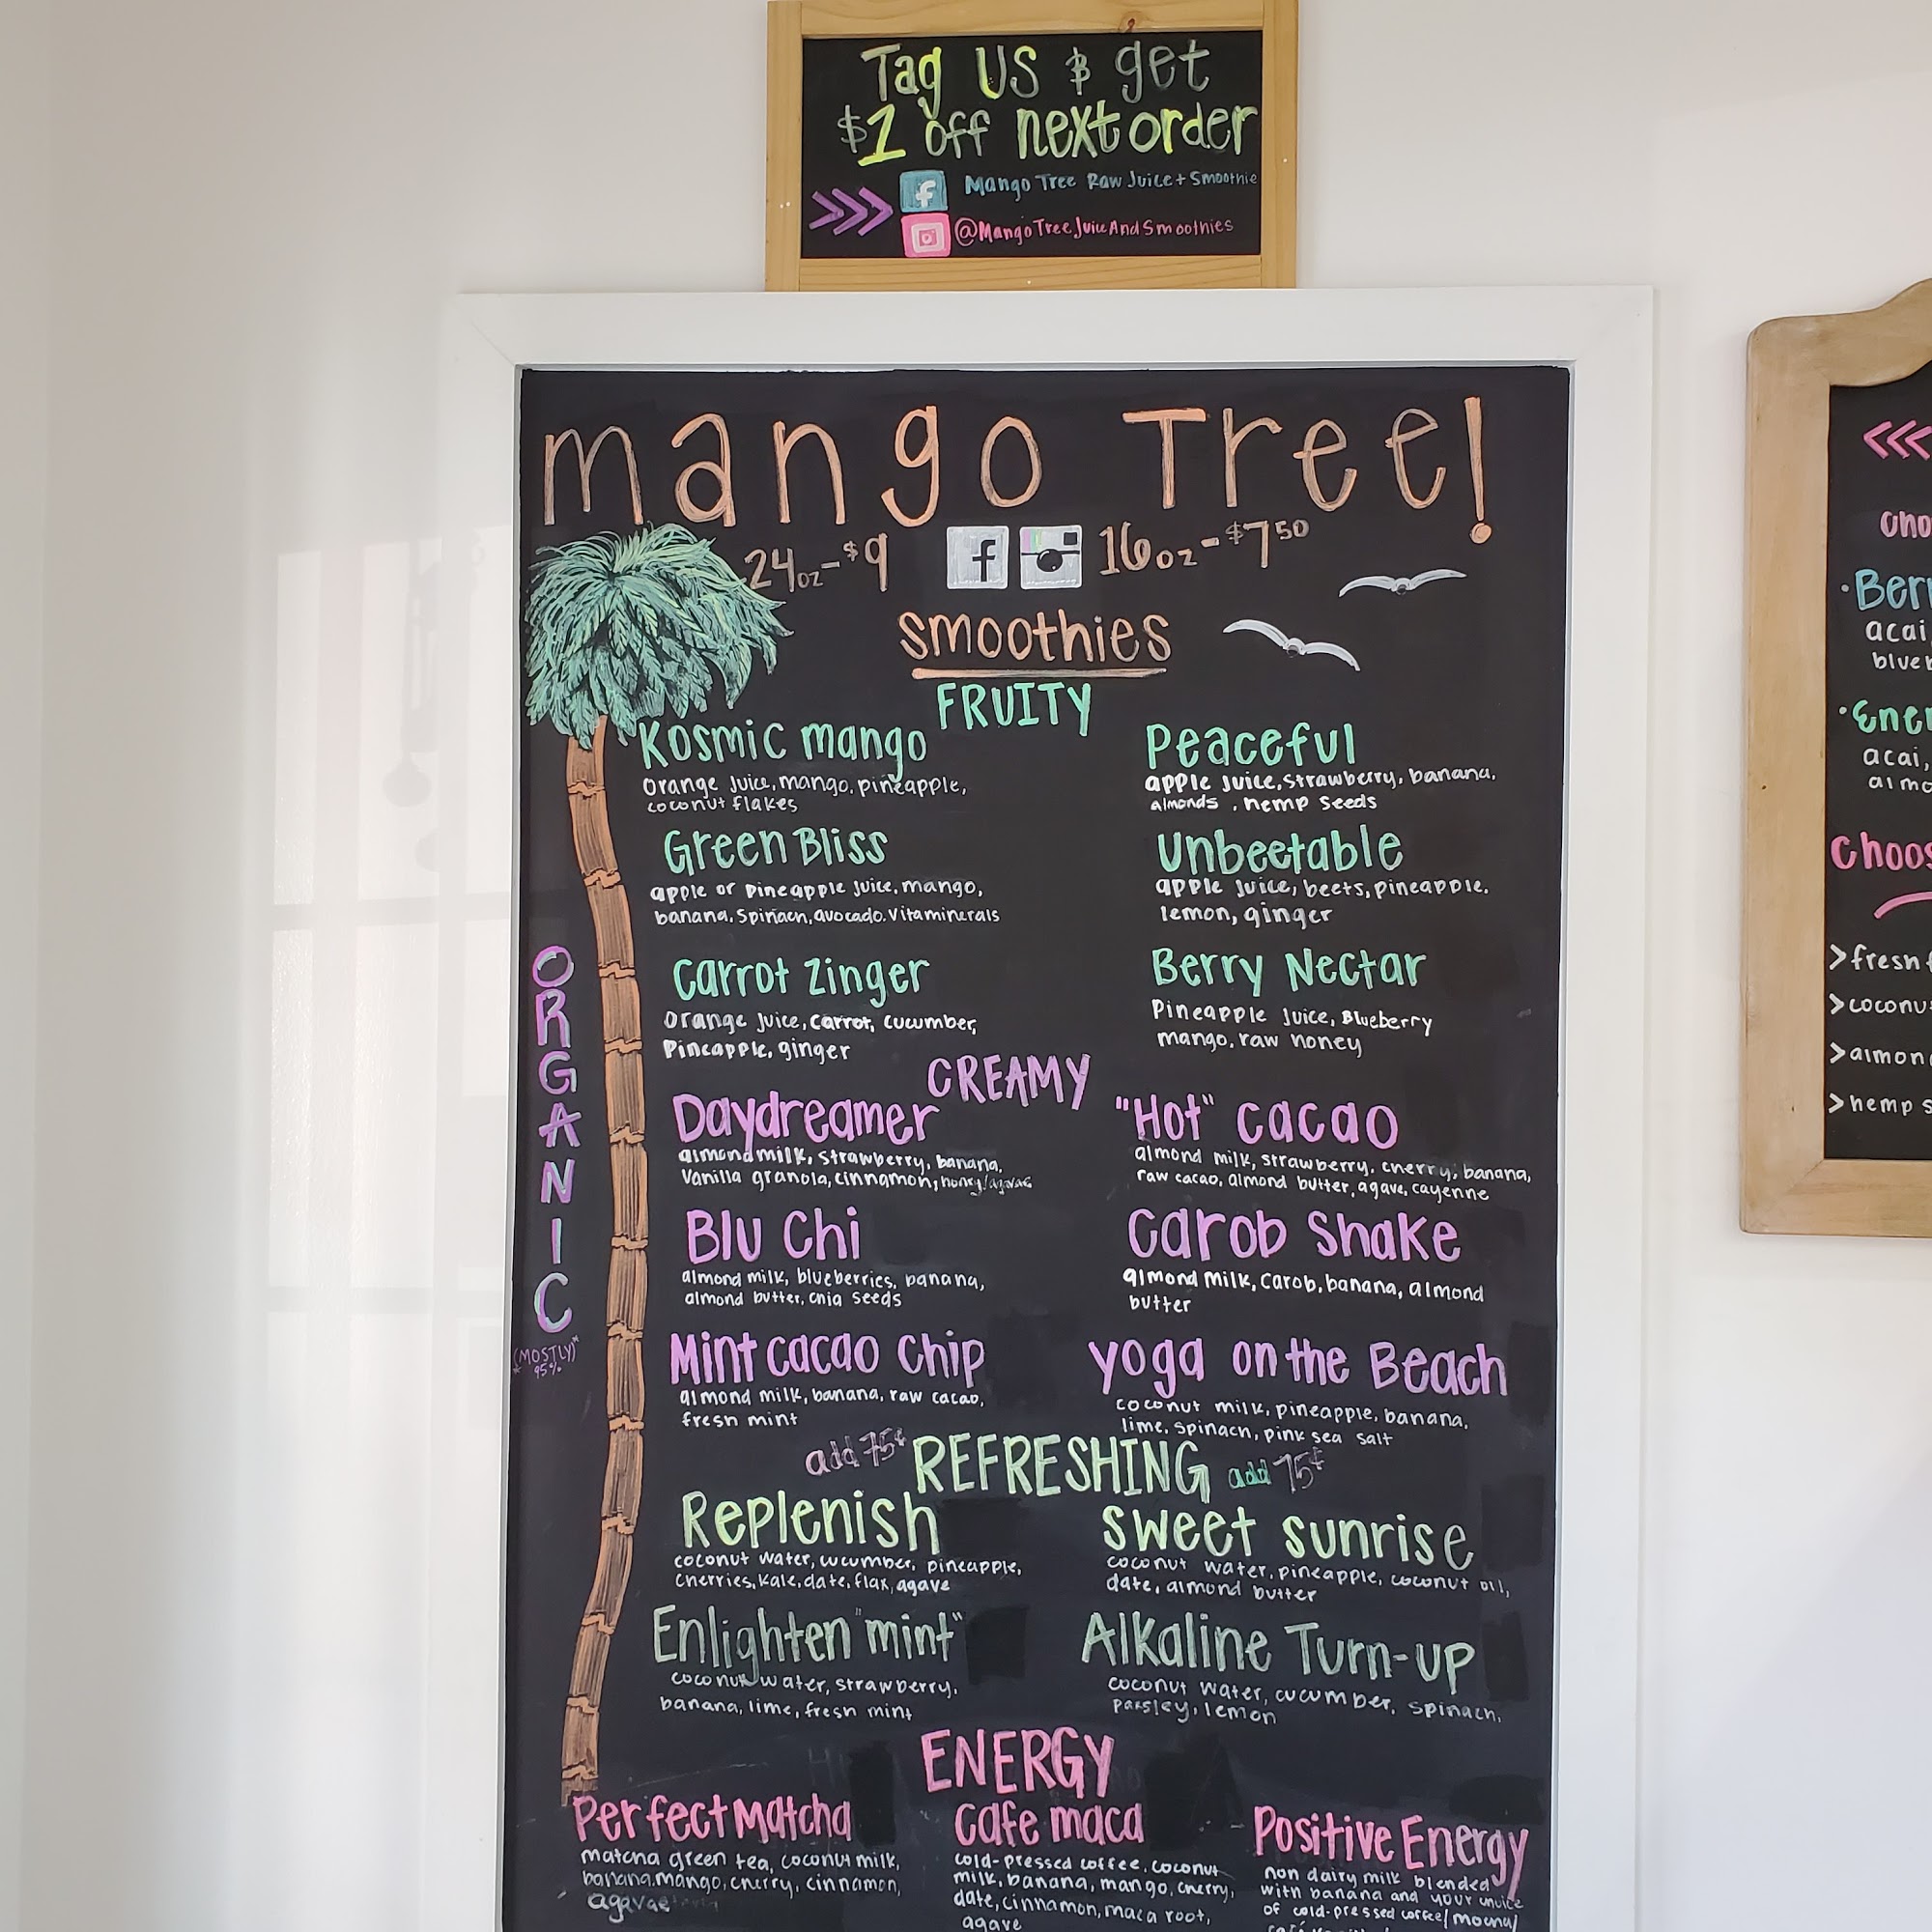 Tag US & get
$1 off next order
>>> f Mango Tree Raw Juice + Smoothie
@MangoTreeJuiceAndSmoothies
mango Tree!
24oz-$9 f 16oz-$7 50
smoothies
FRUITY
Kosmic mango
orange juice, mango, pineapple,
coconut flakes
Peaceful
apple juice, strawberry, banana,
almonds, hemp seeds
Green Bliss
apple or pineapple juice, mango,
banana, spinach, avocado, vitaminerals
Unbeetable
apple juice, beets, pineapple,
lemon, ginger
Carrot Zinger
orange juice, carrot, cucumber,
Pineapple, ginger
Berry Nectar
Pineapple juice, Blueberry
mango, raw honey
CREAMY
Daydreamer
almond milk, strawberry, banana,
Vanilla granola, cinnamon, honey/agavae
"Hot" cacao
almond milk, strawberry, cherry, banana,
raw cacao, almond butter, agave, cayenne
Blu Chi
almond milk, blueberries, banana,
almond butter, chia seeds
Carob Shake
almond milk, carob, banana, almond
butter
Mint cacao Chip
almond milk, banana, raw cacao,
fresh mint
yoga on the Beach
coconut milk, pineapple, banana,
lime, spinach, pink sea salt
add 75¢ REFRESHING add 75¢
Replenish
coconut water, cucumber, pineapple,
cherries, kale, date, flax, agave
sweet sunrise
coconut water, pineapple, coconut oil,
date, almond butter
Enlighten "mint"
coconut water, strawberry,
banana, lime, fresh mint
Alkaline Turn-up
coconut water, cucumber, spinach,
parsley, lemon
ENERGY
Perfect Matcha
matcha green tea, coconut milk,
banana, mango, cherry, cinnamon,
agavae
Cafe maca
cold-pressed coffee, coconut
milk, banana, mango, cherry,
date, cinnamon, maca root,
agave
Positive Energy
non dairy milk blended
with banana and your choice
of cold-pressed coffee/mocha/
ORGANIC
(MOSTLY)*
*95%
<<<
·Berr
acai
blueb
·Ener
acai,
almo
Choos
>fresh f
>coconu
>almon
>hemp s